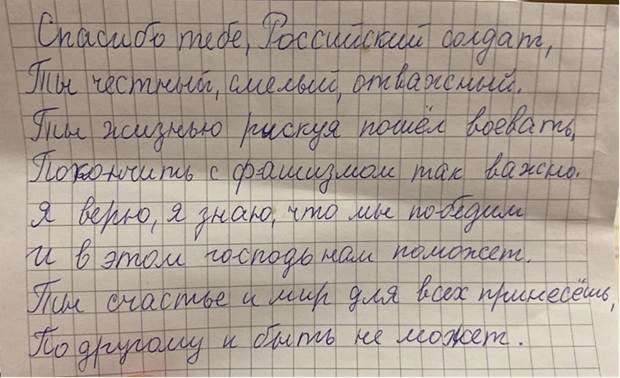 Спасибо тебе, Российский солдат,
Ты честный, смелый, отважный.
Ты жизнью рискуя пошёл воевать,
Покончить с фашизмом так важно.
Я верю, я знаю, что мы победим
И в этом господь нам поможет.
Ты счастье и мир для всех принесёшь,
По другому и быть не может.